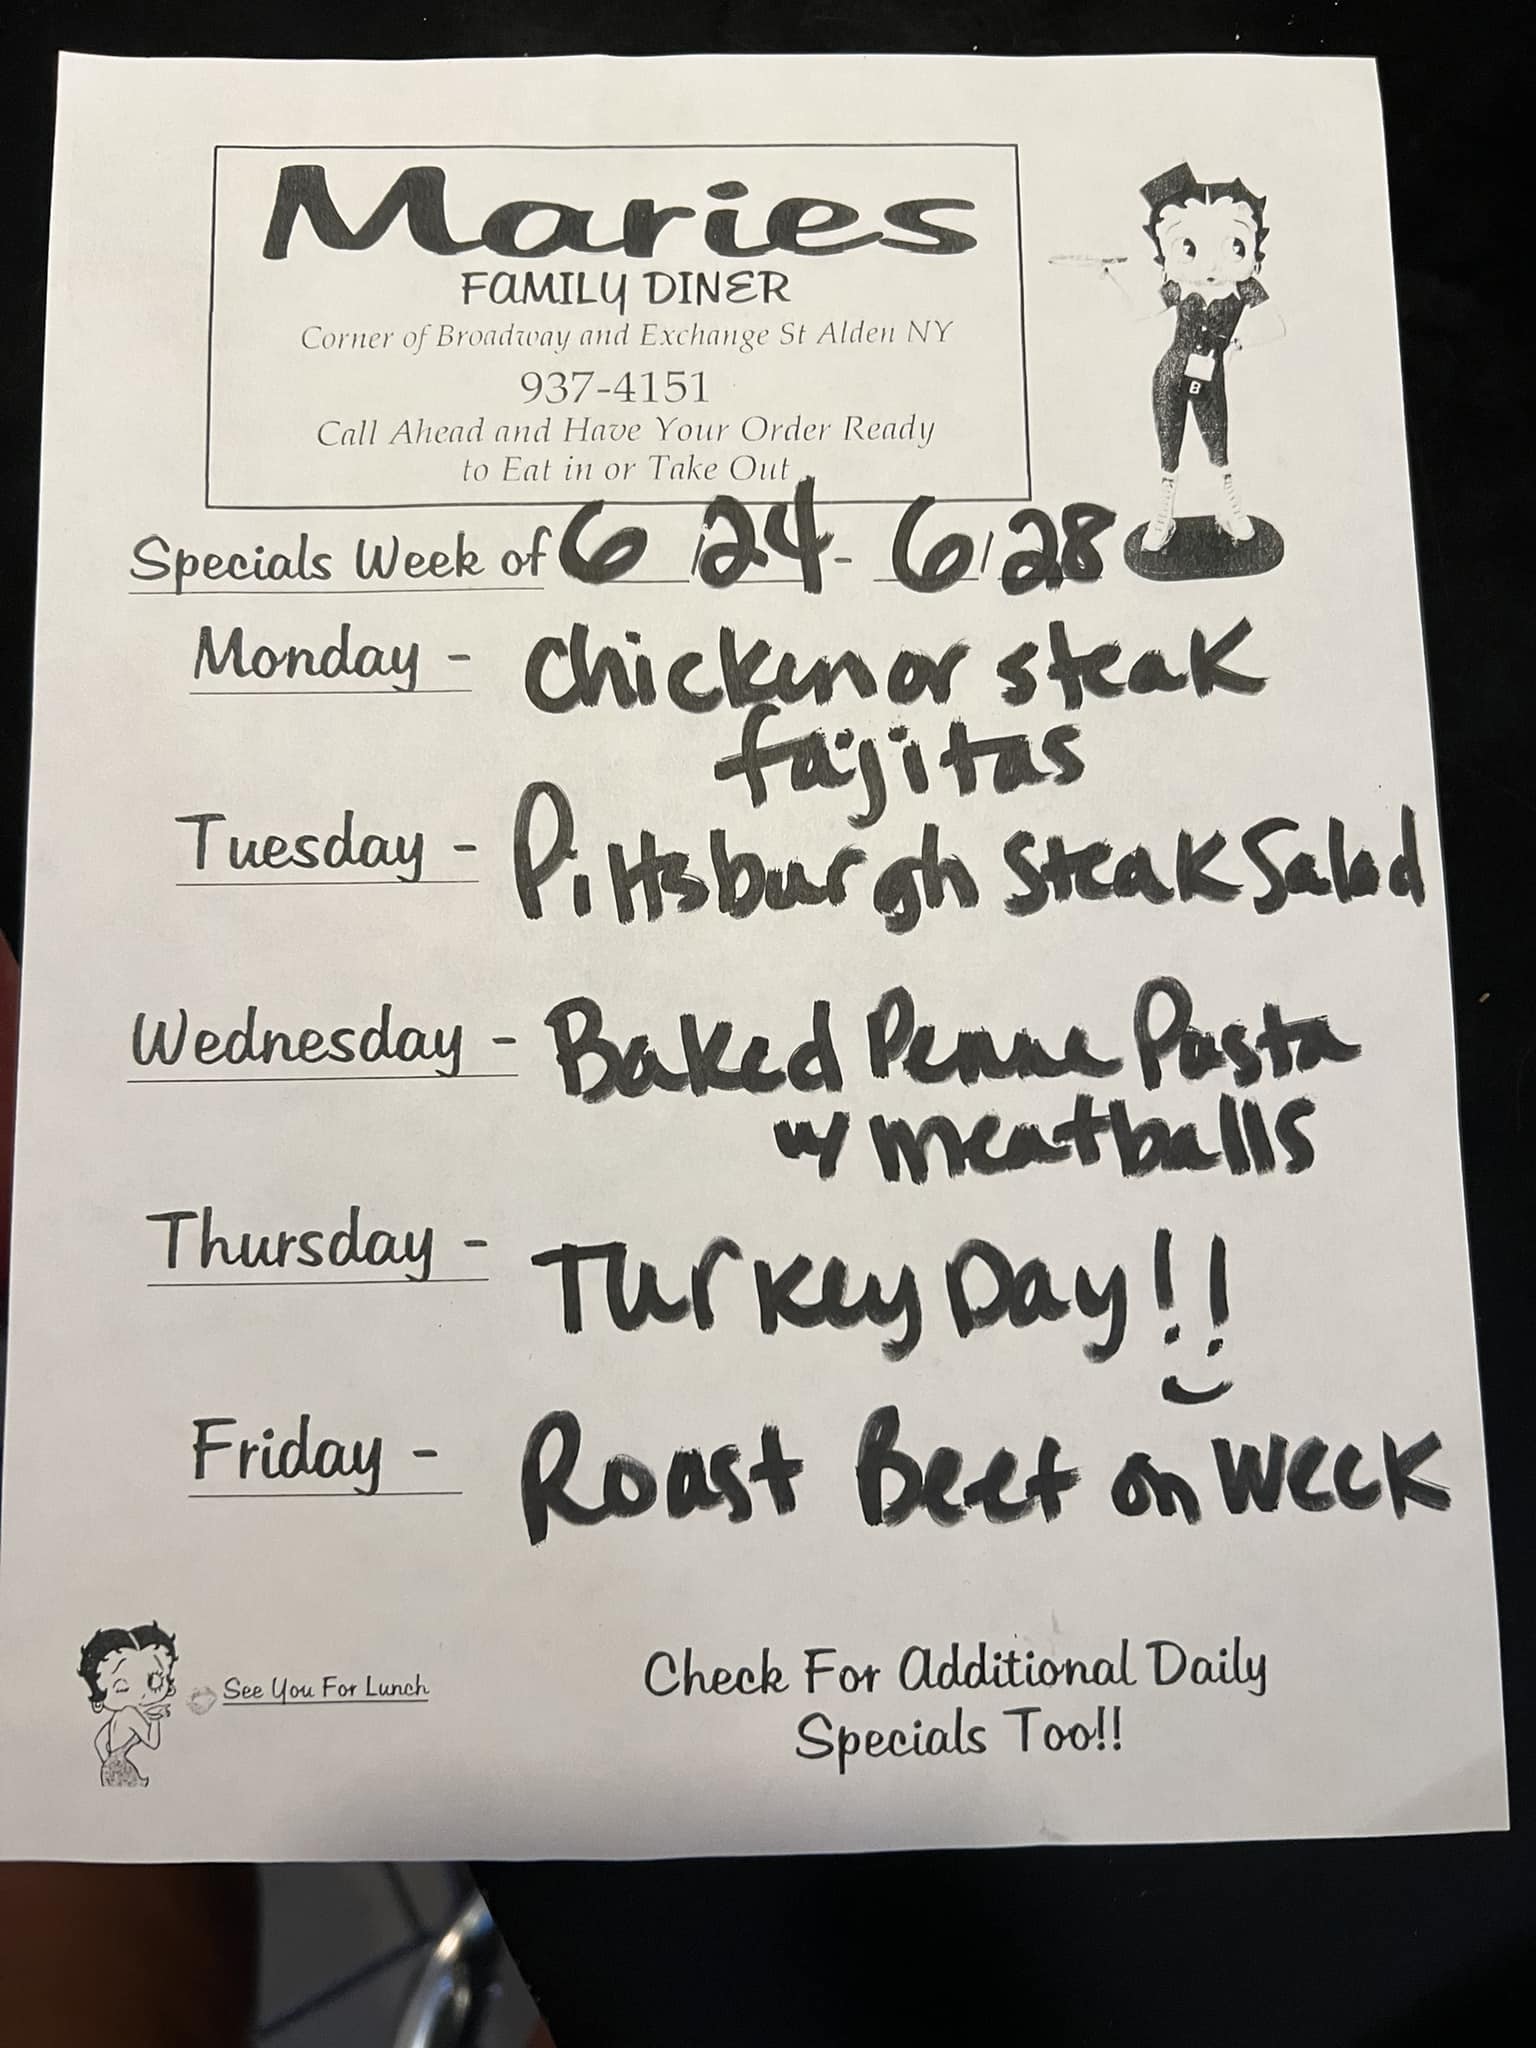 Maries
FAMILY DINER
Corner of Broadway and Exchange St Alden NY
937-4151
Call Ahead and Have Your Order Ready
to Eat in or Take Out
Specials Week of 6/24 - 6/28
Monday - Chicken or steak
fajitas
Tuesday - Pittsburgh Steak Salad
Wednesday - Baked Penne Pasta
w/ meatballs
Thursday - Turkey Day!!
Friday - Roast Beef on Weck
See You For Lunch
Check For Additional Daily
Specials Too!!
B